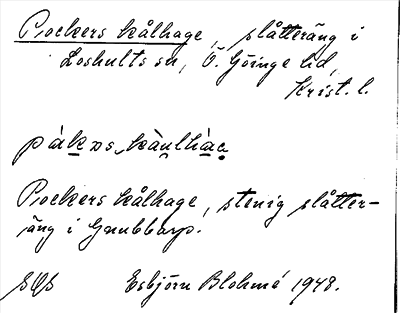 Pockers kålhage, slåtteräng i
Loshults sn, Ö. Göinge hd,
Krist. l.
pàkɒs kàulhàɐ
Pockers kålhage, stenig slåtter-
äng i Gnubbarp.
Esbjörn Blohmé 1948.